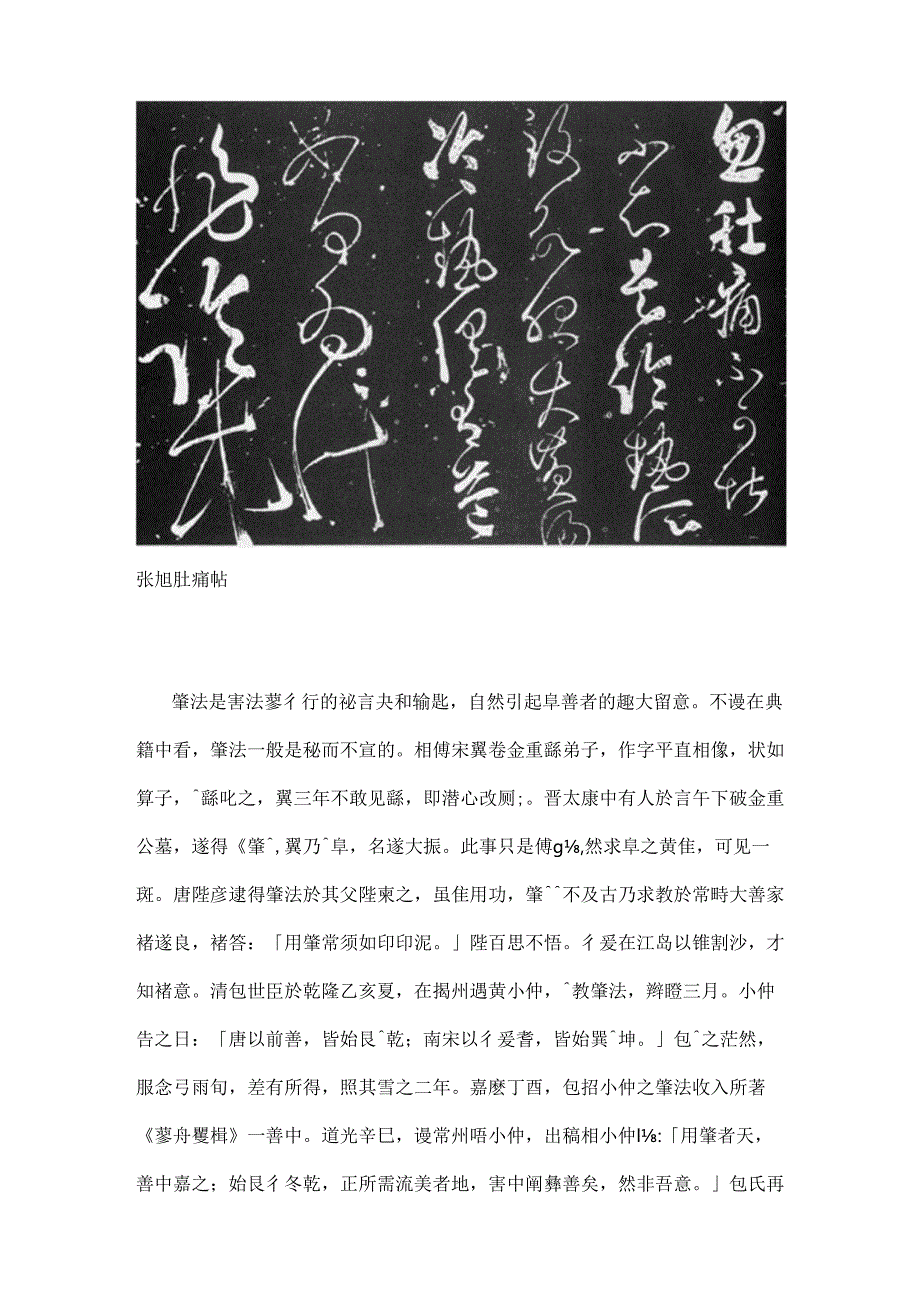 忽肚痛不可堪
不知是冷熱所
致欲服大黃湯
冷熱俱有益
如何為計
张旭肚痛帖
肇法是害法蓼彳行的祕言夬和输匙，自然引起阜善者的趣大留意。不谩在典
籍中看，肇法一般是秘而不宣的。相傅宋翼卷金重繇弟子，作字平直相像，状如
算子，^繇叱之，翼三年不敢见繇，即潜心改厕;。晋太康中有人於言午下破金重
公墓，遂得《肇^,翼乃^阜，名遂大振。此事只是傅g⅛,然求阜之黄隹，可见一
斑。唐陛彦逮得肇法於其父陛柬之，虽隹用功，肇^^不及古乃求教於常畤大善家
褚遂良，褚答：「用肇常须如印印泥。」陛百思不悟。彳爰在江岛以锥割沙，才
知褚意。清包世臣於乾隆乙亥夏，在揭州遇黄小仲，^教肇法，辫瞪三月。小仲
告之日：「唐以前善，皆始艮^乾；南宋以彳爰耆，皆始巽^坤。」包^之茫然，
服念弓雨旬，差有所得，照其雪之二年。嘉麽丁酉，包招小仲之肇法收入所著
《蓼舟矍楫》一善中。道光辛巳，谩常州唔小仲，出稿相小仲l⅛:「用肇者天，
善中嘉之；始艮彳冬乾，正所需流美者地，害中阐彝善矣，然非吾意。」包氏再